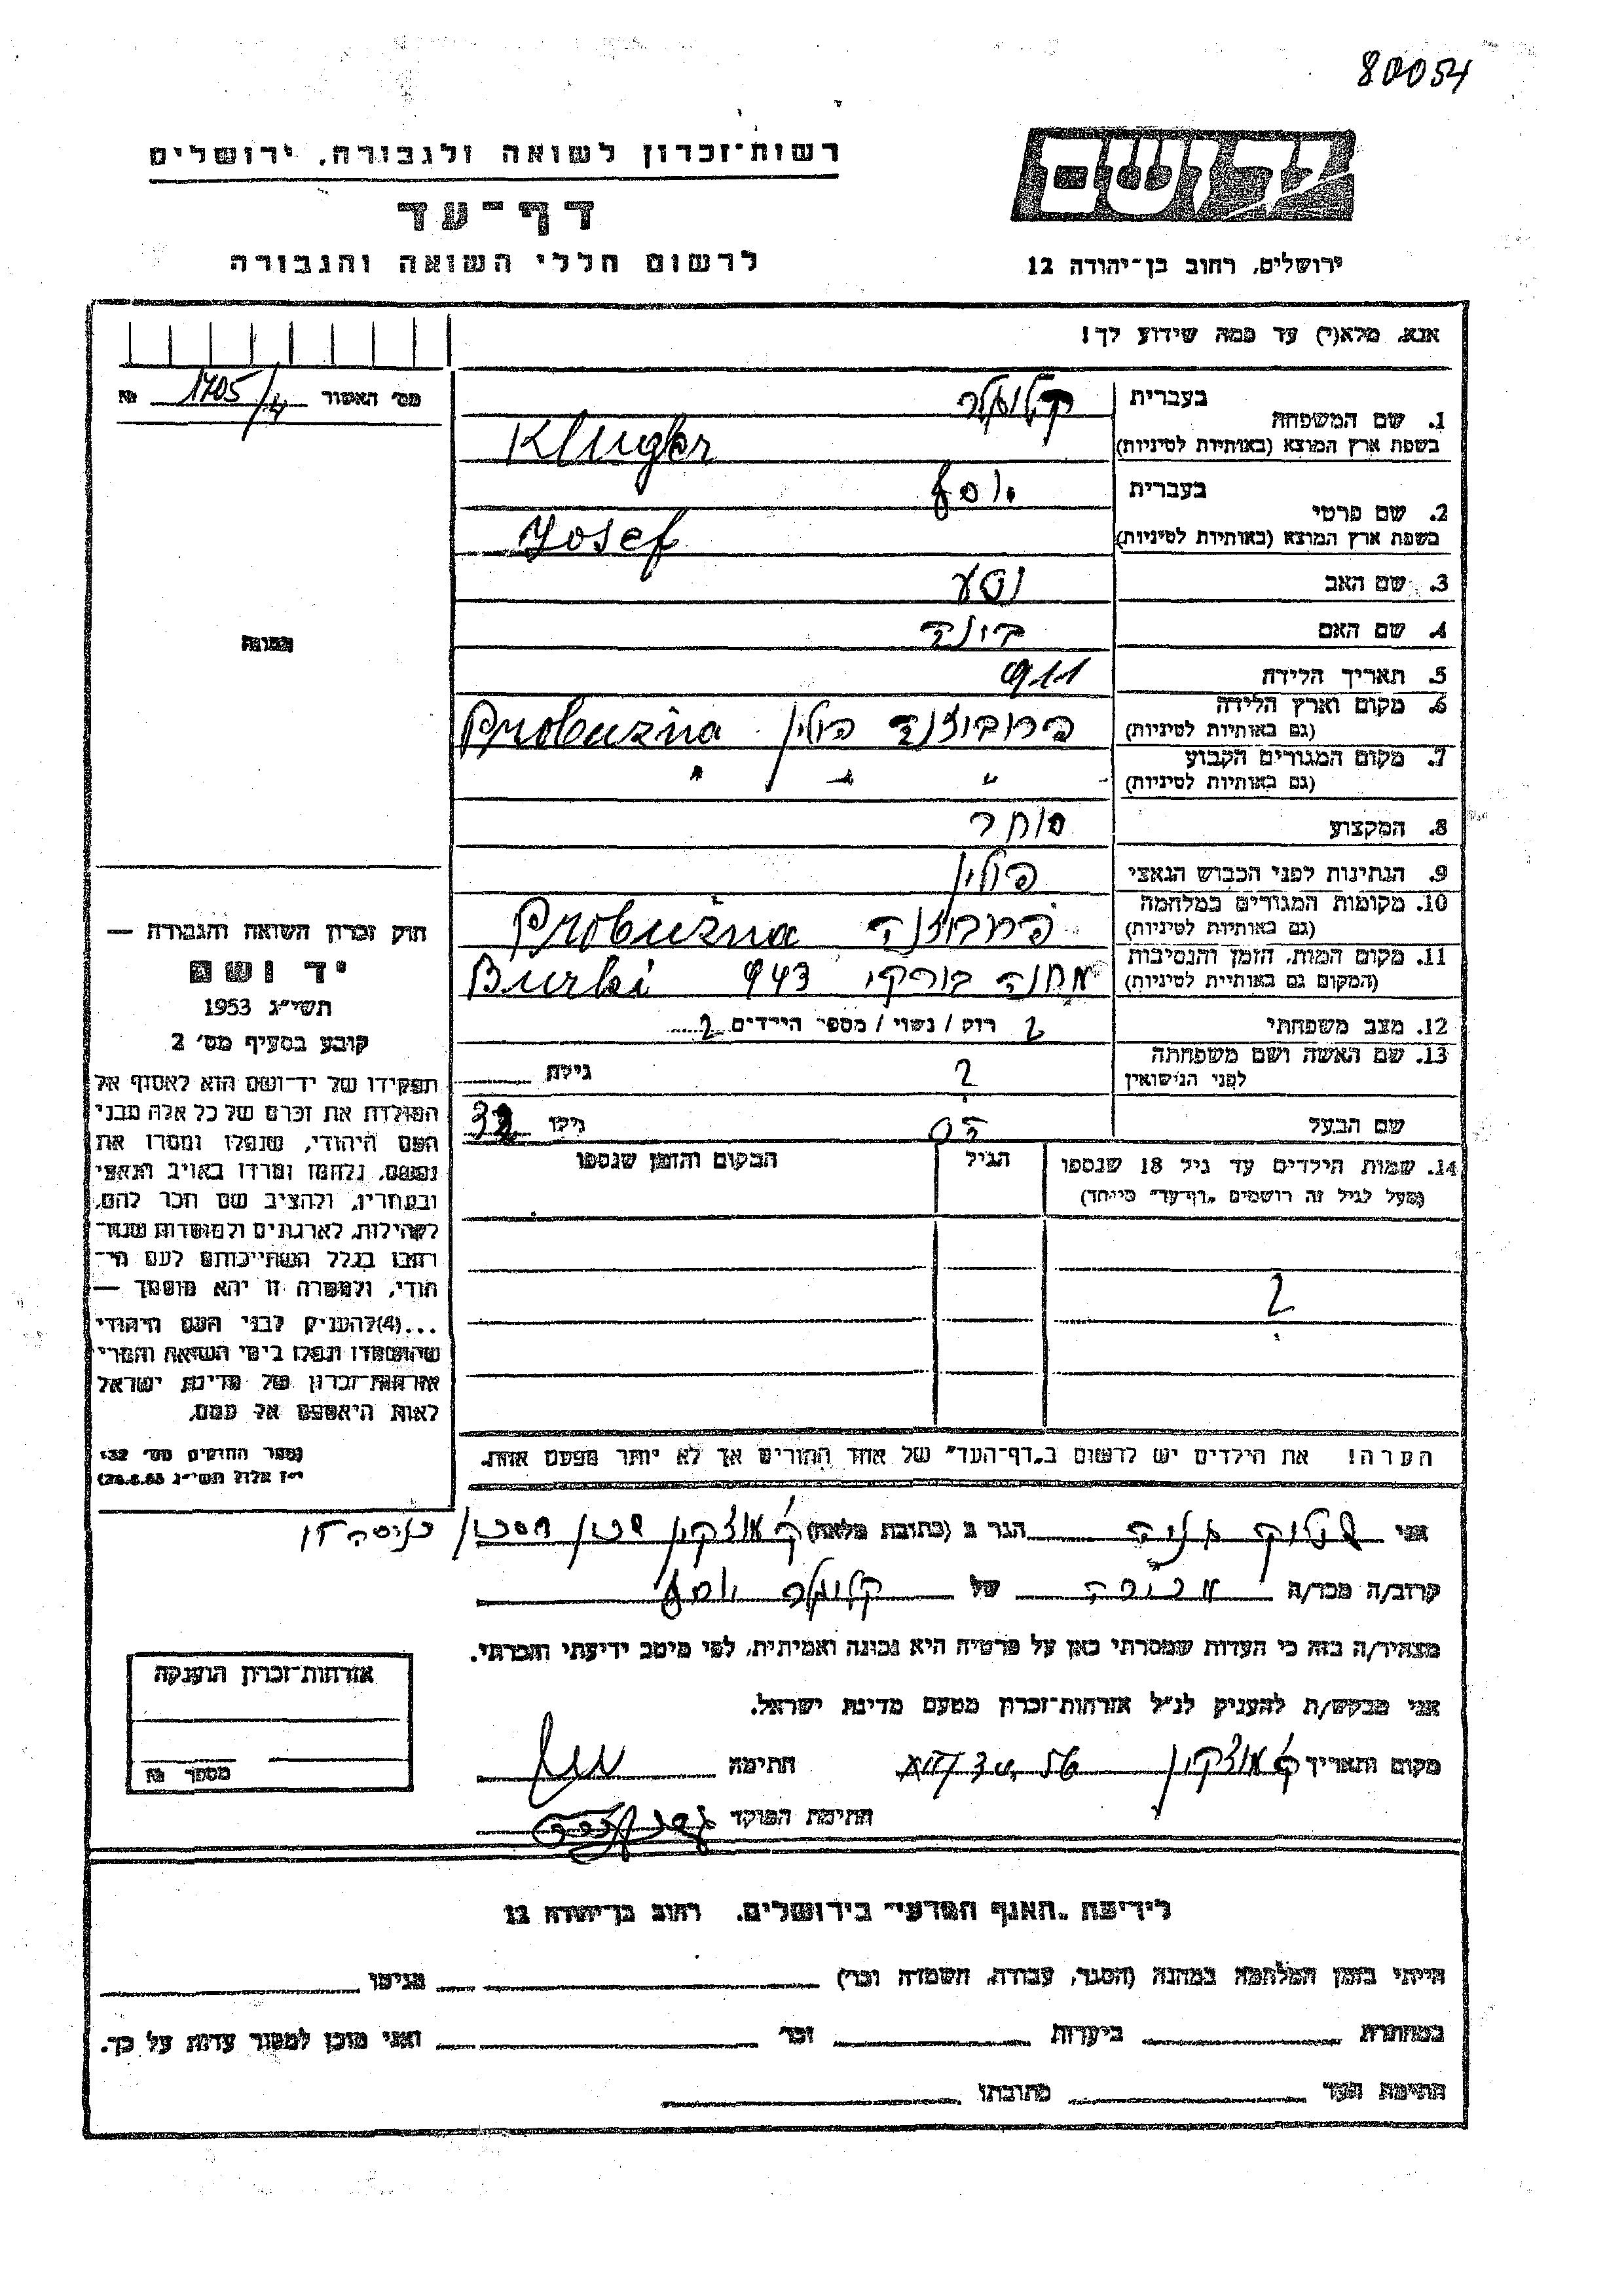 80054
רשות־זכרון לשואה ולגבורה, ירושלים
דף־עד
לרשום חללי השואה והגבורה
ידושם
ירושלים, רחוב בן־יהודה 12
אנא, מלא(י) עד כמה שידוע לך!
מס' האשור 1705/4 №
1. שם המשפחה
בעברית קלוגער
בשפת ארץ המוצא (באותיות לטיניות) Kluger
2. שם פרטי
בעברית יוסף
בשפת ארץ המוצא (באותיות לטיניות) Josef
3. שם האב נטע
4. שם האם
5. תאריך הלידה 911
6. מקום וארץ הלידה
(גם באותיות לטיניות) פרובוזנה פולין Probużna
7. מקום המגורים הקבוע
(גם באותיות לטיניות) " " "
8. המקצוע סוחר
9. הנתינות לפני הכבוש הנאצי פולין
10. מקומות המגורים במלחמה
(גם באותיות לטיניות) פרבוזנה Probużna
11. מקום המות, הזמן והנסיבות
(המקום גם באותיית לטיניות) מחנה בורקי 943 Burki
12. מצב משפחתי ? רווק / נשוי / מספר הילדים ?
13. שם האשה ושם משפחתה
לפני הנישואין ? גילה
שם הבעל גילו 32
14. שמות הילדים עד גיל 18 שנספו
(מעל לגיל זה רושמים „דף־עד" מיוחד)
הגיל
המקום והזמן שנספו
?
הערה! את הילדים יש לרשום ב„דף־העד" של אחד ההורים אך לא יותר מפעם אחת.
התמונה
חוק זכרון השואה והגבורה —
יד ושם
תשי״ג 1953
קובע בסעיף מס' 2
תפקידו של יד־ושם הוא לאסוף אל
המולדת את זכרם של כל אלה מבני
העם היהודי, שנפלו ומסרו את
נפשם, נלחמו ומרדו באויב הנאצי
ובעוזריו, ולהציב שם וזכר להם,
לקהילות, לארגונים ולמוסדות שנח־
רבו בגלל השתייכותם לעם הי־
הודי, ולמטרה זו יהא מוסמך —
...(4)להעניק לבני העם היהודי
שהושמדו ונפלו בימי השואה והמרי
אזרחות־זכרון של מדינת ישראל
לאות היאספם אל עמם.
(ספר החוקים מס' 132
י״ז אלול תשי״ג 28.8.53)
אני הגר ב (כתובת מלאה) ק. מוצקין שכון חסכון כניסה
קרוב/ה מכר/ה של קלוגער יוסף
מצהיר/ה בזה כי העדות שמסרתי כאן על פרטיה היא נכונה ואמיתית, לפי מיטב ידיעתי והכרתי.
אני מבקש/ת להעניק לנ״ל אזרחות־זכרון מטעם מדינת ישראל.
מקום ותאריך ק. מוצקין חתימה
חתימת הפוקד
אזרחות־זכרון הוענקה
מספר №
לידיעת „האגף המדעי" בירושלים, רחוב בן־יהודה 12
הייתי בזמן המלחמה במחנה (הסגר, עבודה, השמדה וכו') בגיטו
במחתרת ביערות וכו' ואני מוכן למסור עדות על כך.
חתימת העד כתובתו